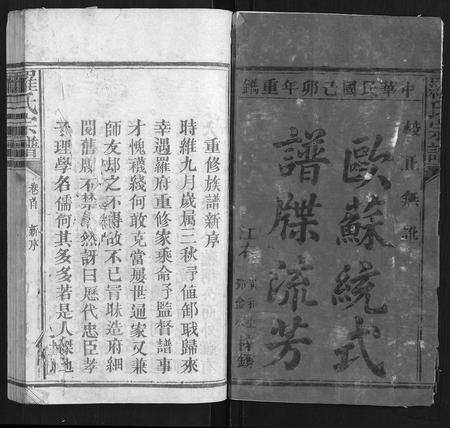 中華民國己卯年重鐫
校正無訛
歐蘇統式
譜牒流芳
羅氏宗譜
重修族譜新序
時維九月歲属三秋予値郇戢歸來
幸遇羅府重修家乘命予監督譜事
才愧襪綫何敢克當屢世通家又兼
師友郄之不得故不已冐昧造府細
閱舊
然訝曰歷代忠臣孝
子理學名儒何其多多若是人傑地
羅氏宗譜
卷首
新序